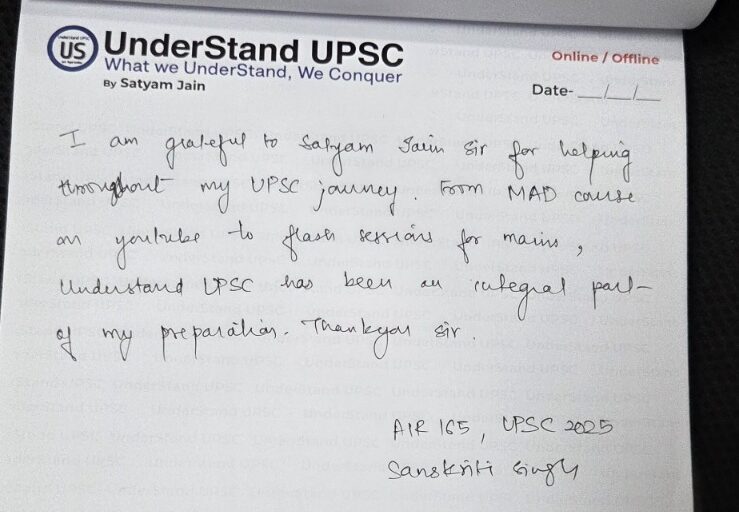 US
UnderStand UPSC
What we UnderStand, We Conquer
By Satyam Jain
Online / Offline
Date- __/__/__
I am grateful to Satyam Jain Sir for helping
throughout my UPSC journey. From MAD course
on youtube to flash sessions for mains,
Understand UPSC has been an integral part
of my preparation. Thankyou sir.
AIR 165, UPSC 2025
Sanskriti Singh